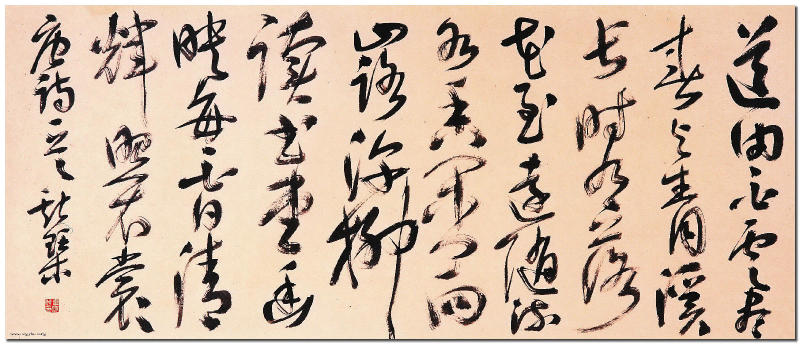 道由白雲盡
春與青溪
長時有落
花至遠隨流
水香閒門向
山路深柳
讀書堂幽
映每白日清
輝照衣裳
唐詩